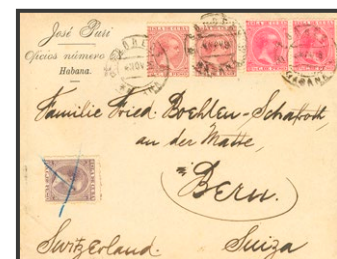 José Puri
Oficios número
Habana.
Familie Fried. Boehlen-Schafroth,
an der Matte,
Bern.
Switzerland. Suiza